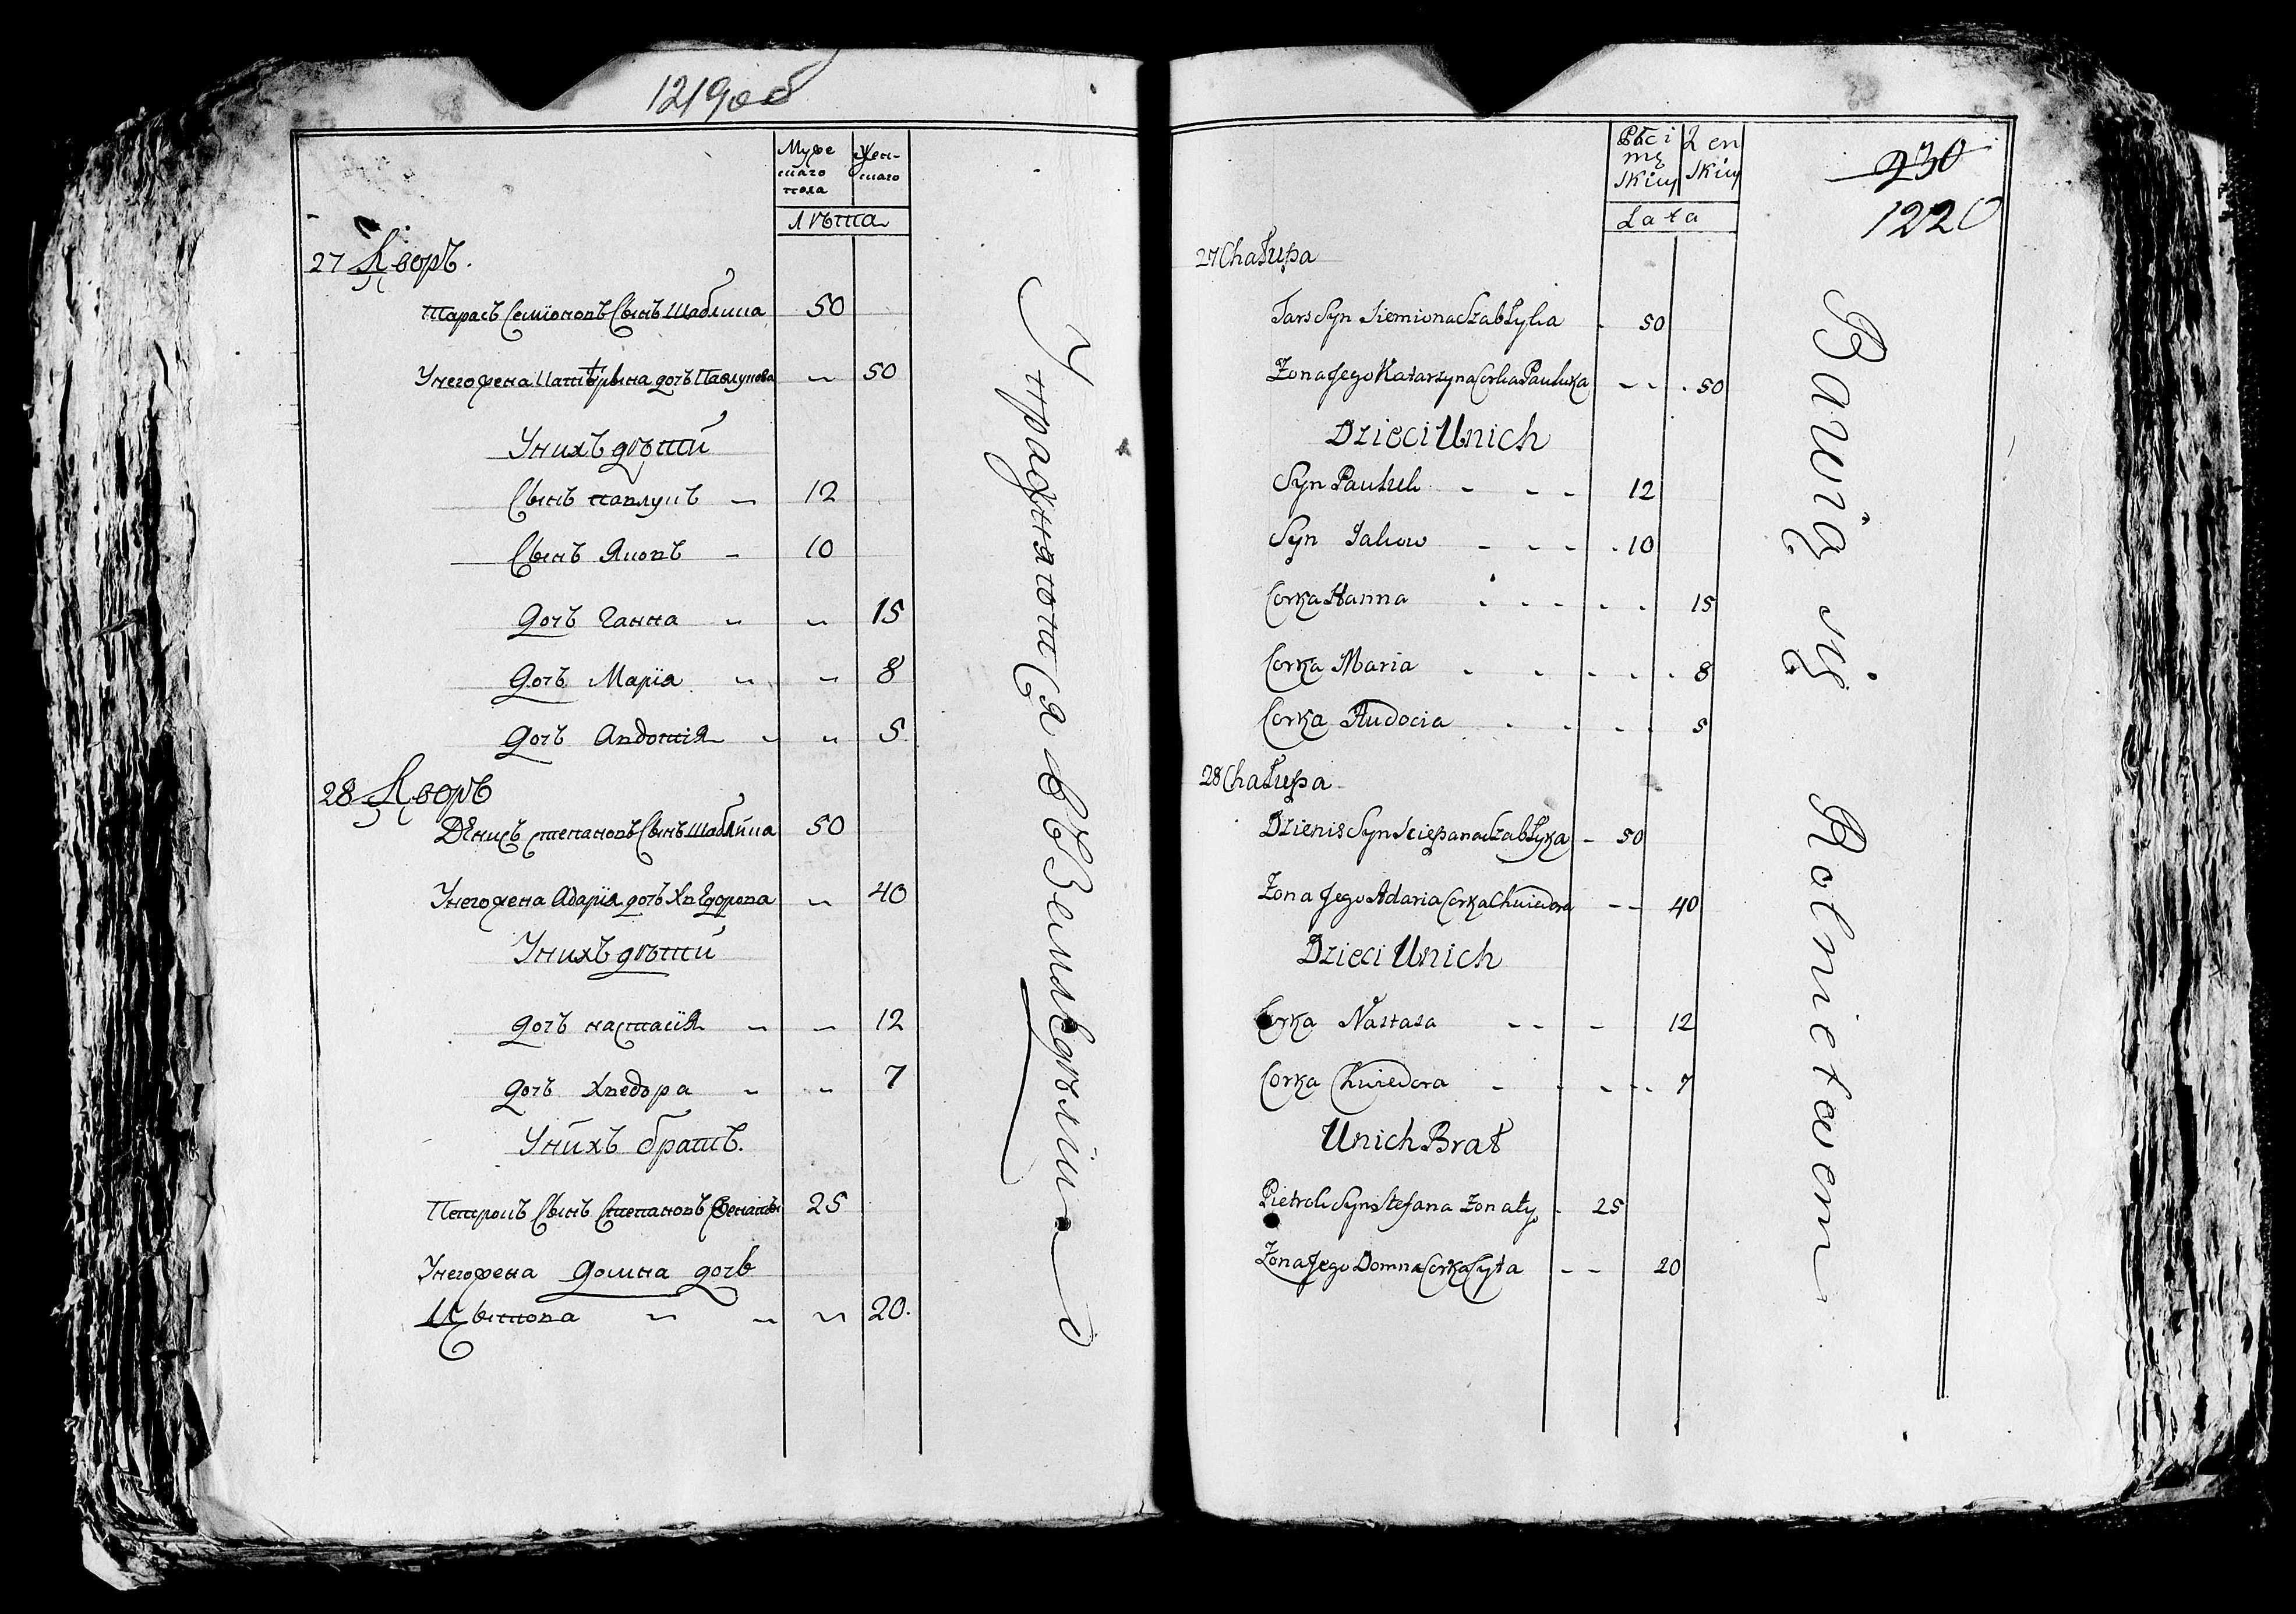 1219об
Муже
скаго
пола
Жен-
скаго
лѣта
27 Дворъ.
Тарасъ Семионовъ Сынъ Шаблика 50
Унего жена Катѣрына дочъ Павлукова 50
Унихъ дѣти
Сынъ павлукъ 12
Сынъ Яковъ 10
дочъ Ганна 15
дочъ Марія 8
дочъ Авдотія 5
28 Дворъ
Дѣнисъ степановъ Сынъ шаблика 50
Унего жена Адарія дочъ Хвѣдорова 40
Унихъ дѣти
дочъ настасія 12
дочъ Хведора 7
Унихъ братъ.
Петрокъ Сынъ Степановъ женатъ 25
Унего жена домна дочъ
Цытова 20.
Упражняются въ Земледѣліи
Płci
mę
skiey
Żen
skiey
Lata
230
1220
27 Chałupa
Tars Syn Siemiona Szabłyka 50
Żona Jego Katarzyna Corka Pauluka 50
Dzieci Unich
Syn Pauluk 12
Syn Jakow 10
Corka Hanna 15
Corka Maria 8
Corka Audocia 5
28 Chałupa
Dzienis Syn Sciepana Szabłyka 50
Żona Jego Adaria Corka Chwiedora 40
Dzieci Unich
Corka Nastasa 12
Corka Chwiedora 7
Unich Brat
Pietrok Syn Stefana Żonaty 25
Żona Jego Domna Corka Cyta 20
Bawią się Rolnictwem